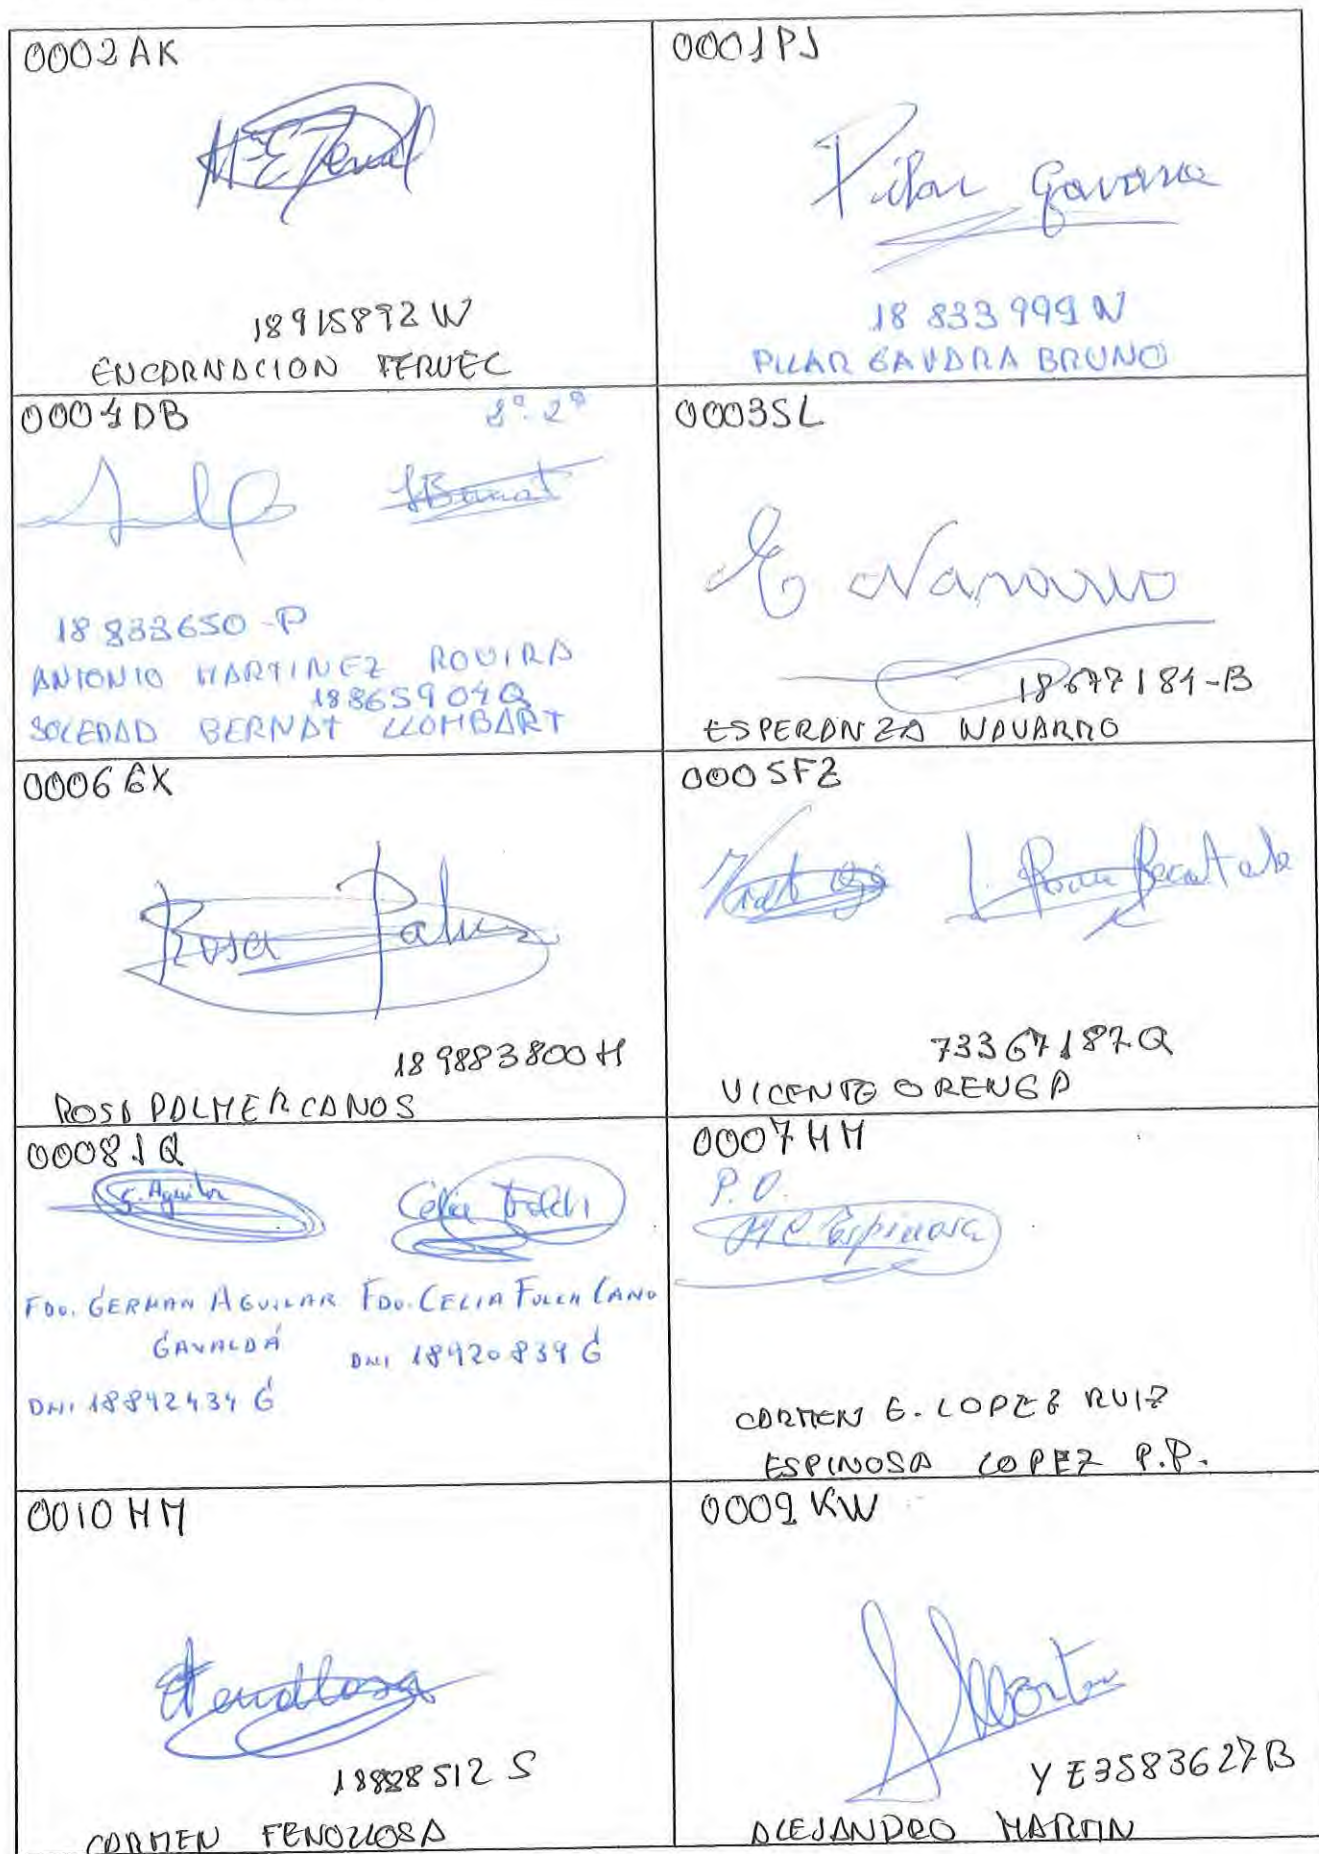 0002AK
18915892W
ENCARNACION TERUEL
0001PJ
Pilar Gavara
18 833 999 N
PILAR GAVARA BRUNO
0004DB
1º 2ª
SBernat
18 833650-P
ANTONIO MARTINEZ ROVIRA
18865904Q
SOLEDAD BERNAT LLOMBART
0003SL
E Navarro
18677184-B
ESPERANZA NAVARRO
0006GX
Rosa Palmer
189883800H
ROSA PALMER CANOS
0005FZ
73367187Q
VICENTE ORENGA
0008JQ
G. Aguilar Celia Folch
FDO. GERMAN AGUILAR FDO. CELIA FOLCH CANO
GAVALDÁ DNI 18920839 G
DNI 18842434 G
0007HM
P.O.
M.C. Espinosa
CARMEN E. LOPEZ RUIZ
ESPINOSA LOPEZ P.P.
0010HM
Fenollosa
18828512 S
CARMEN FENOLLOSA
0009KW
AMartin
YE3583627B
ALEJANDRO MARTIN